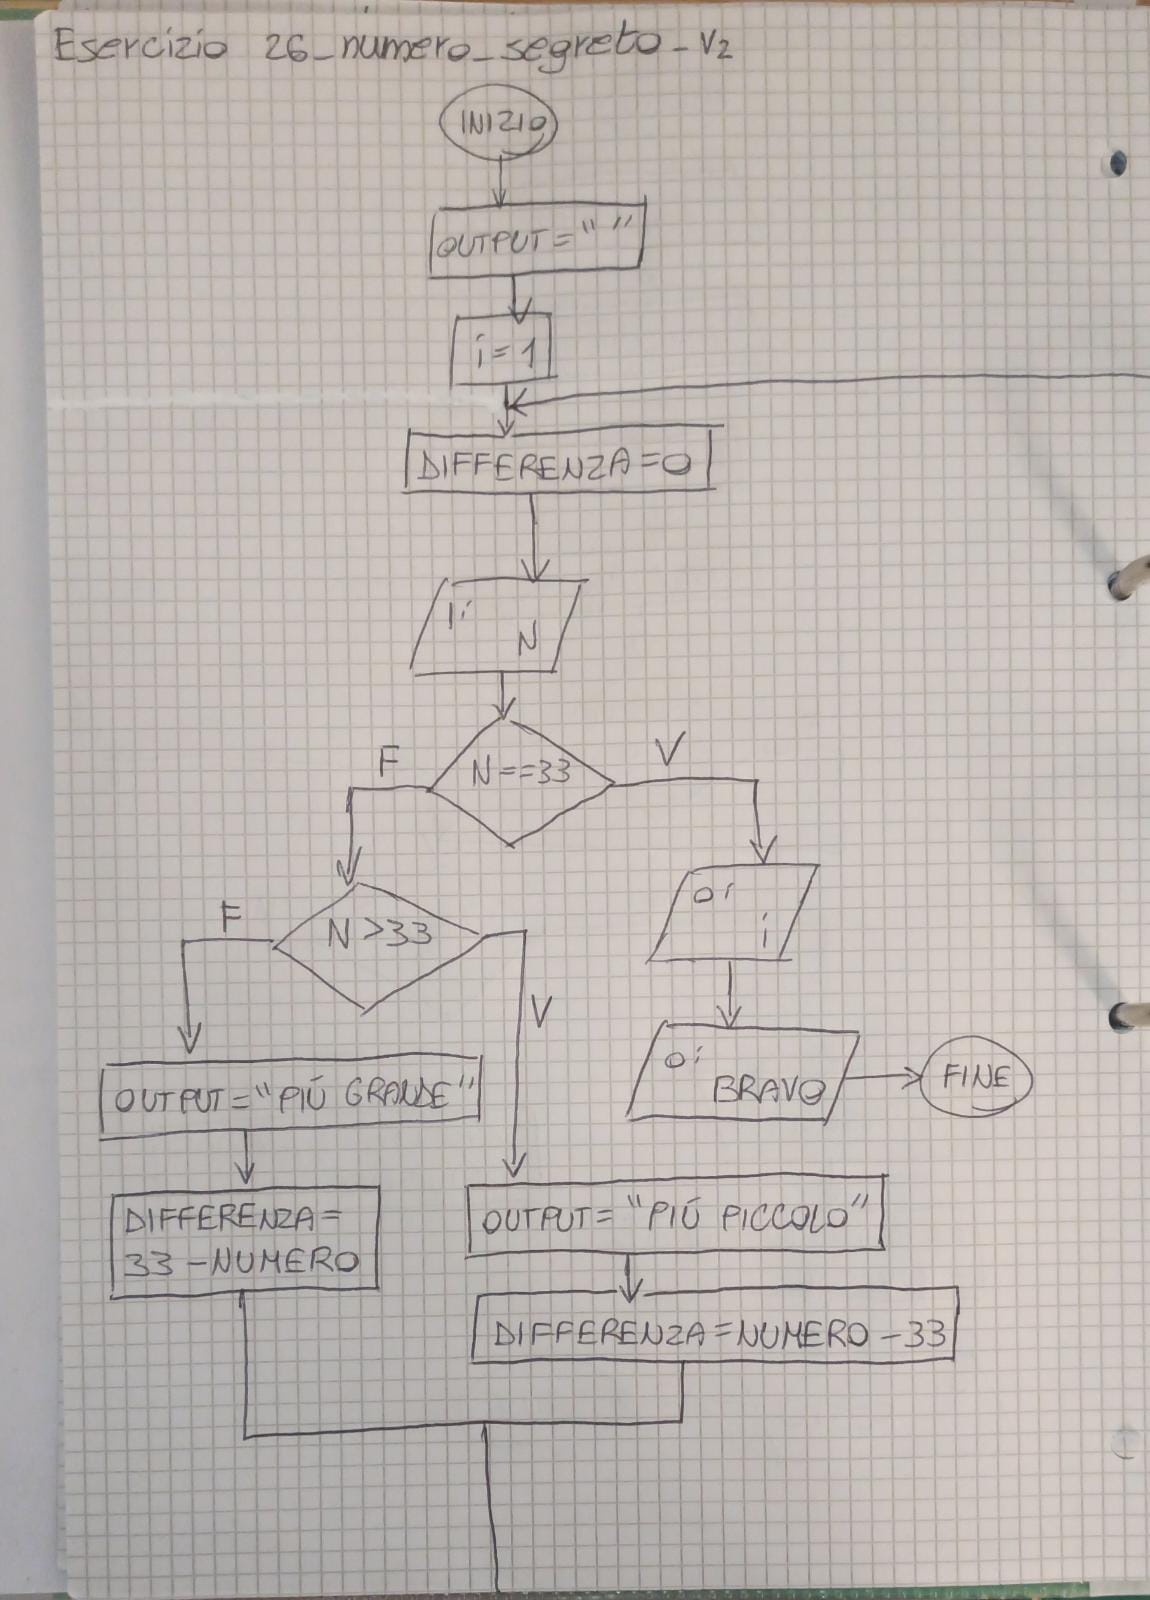 Esercizio 26_numero_segreto_V2
INIZIO
OUTPUT = " "
i = 1
DIFFERENZA = 0
I: N
N == 33
F
V
N > 33
F
V
O: i
O: BRAVO
FINE
OUTPUT = "PIÚ GRANDE"
DIFFERENZA =
33 - NUMERO
OUTPUT = "PIÚ PICCOLO"
DIFFERENZA = NUMERO - 33